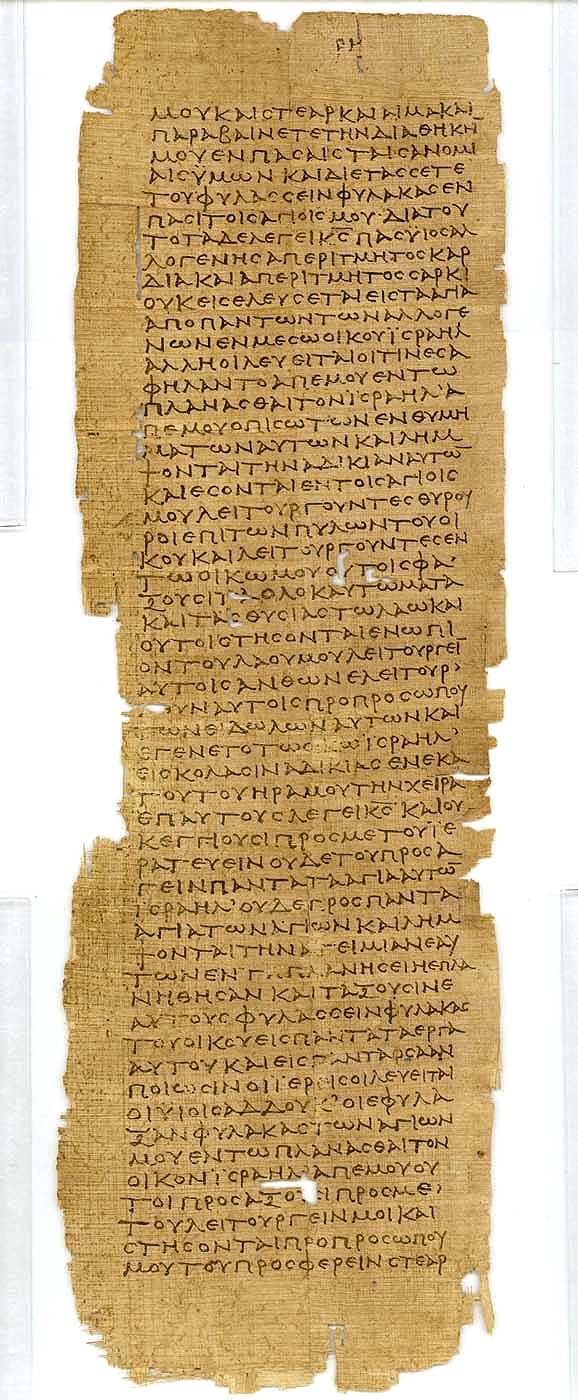 ΜΟΥΚΑΙΣΤΕΑΡΚΑΙΑΙΜΑΚΑΙ
ΠΑΡΑΒΑΙΝΕΤΕΤΗΝΔΙΑΘΗΚΗ̅
ΜΟΥΕΝΠΑΣΑΙΣΤΑΙΣΑΝΟΜΙ
ΑΙΣΥΜΩΝ ΚΑΙΔΙΕΤΑΣΣΕΤΕ
ΤΟΥΦΥΛΑΣΣΕΙΝΦΥΛΑΚΑΣΕΝ
ΠΑΣΙΤΟΙΣΑΓΙΟΙΣΜΟΥ·ΔΙΑΤΟΥ
ΤΟΤΑΔΕΛΕΓΕΙΚ̅Σ̅ΠΑΣΥΙΟΣΑΛ
ΛΟΓΕΝΗΣΑΠΕΡΙΤΜΗΤΟΣΚΑΡ
ΔΙΑΚΑΙΑΠΕΡΙΤΜΗΤΟΣΣΑΡΚΙ
ΟΥΚΕΙΣΕΛΕΥΣΕΤΑΙΕΙΣΤΑΑΓΙΑ
ΑΠΟΠΑΝΤΩΝΤΩΝΑΛΛΟΓΕ
ΝΩΝΕΝΜΕΣΩΟΙΚΟΥΪΣΡΑΗΛ
ΑΛΛΗΟΙΛΕΥΕΙΤΑΙΟΙΤΙΝΕΣΑ
ΦΗΛΑΝΤΟΑΠΕΜΟΥΕΝΤΩ
ΠΛΑΝΑΣΘΑΙΤΟΝΪΣΡΑΗΛ'Α
ΠΕΜΟΥΟΠΙΣΩΤΩΝΕΝΘΥΜΗ
ΜΑΤΩΝΑΥΤΩΝΚΑΙΛΗΜ
ΨΟΝΤΑΙΤΗΝΑΔΙΚΙΑΝΑΥΤΩ̅
ΚΑΙΕΣΟΝΤΑΙΕΝΤΟΙΣΑΓΙΟΙΣ
ΜΟΥΛΕΙΤΟΥΡΓΟΥΝΤΕΣΘΥΡΟΥ
ΡΟΙΕΠΙΤΩΝΠΥΛΩΝΤΟΥΟΙ
ΚΟΥΚΑΙΛΕΙΤΟΥΡΓΟΥΝΤΕΣΕΝ
ΤΩΟΙΚΩΜΟΥΟΥΤΟΙΣΦΑ'
ΞΟΥΣΙΤ ΟΛΟΚΑΥΤΩΜΑΤΑ
ΚΑΙΤΑΣΘΥΣΙΑΣΤΩΛΑΩΚΑΙ
ΟΥΤΟΙΣΤΗΣΟΝΤΑΙΕΝΩΠΙ
ΟΝΤΟΥΛΑΟΥΜΟΥΛΕΙΤΟΥΡΓΕΙ̅
ΑΥΤΟΙΣΑΝΘΩΝΕΛΕΙΤΟΥΡ'
ΟΥΝΑΥΤΟΙΣΠΡΟΠΡΟΣΩΠΟΥ
ΤΩΝΕΙΔΩΛΩΝΑΥΤΩΝΚΑΙ
ΕΓΕΝΕΤΟΤΩΟΙΚΩΪΣΡΑΗΛ'
ΕΙΣΚΟΛΑΣΙΝΑΔΙΚΙΑΣΕΝΕΚΑ
ΤΟΥΤΟΥΗΡΑΜΟΥΤΗΝΧΕΙΡΑ
ΕΠΑΥΤΟΥΣΛΕΓΕΙΚ̅Σ̅ΚΑΙΟΥ
ΚΕΓΓΙΟΥΣΙΠΡΟΣΜΕΤΟΥΪΕ
ΡΑΤΕΥΕΙΝΟΥΔΕΤΟΥΠΡΟΣΑ
ΓΕΙΝΠΑΝΤΑΤΑΑΓΙΑΑΥΤΩ̅
ΪΣΡΑΗΛ'ΟΥΔΕΠΡΟΣΠΑΝΤΑ
ΑΓΙΑΤΩΝΑΓΙΩΝΚΑΙΛΗΜ
ΨΟΝΤΑΙΤΗΝΑΤΕΙΜΙΑΝΕΑΥ
ΤΩΝΕΝ ΠΛΑΝΗΣΕΙΗΕΠΛΑ
ΝΗΘΗΣΑΝ ΚΑΙΤΑΞΟΥΣΙΝΕ
ΑΥΤΟΥΣΦΥΛΑΣΣΕΙΝΦΥΛΑΚΑΣ
ΤΟΥΟΙΚΟΥΕΙΣΠΑΝΤΑΤΑΕΡΓΑ
ΑΥΤΟΥΚΑΙΕΙΣΠΑΝΤΑΟΣΑΑΝ
ΠΟΙΩΣΙΝΟΙΪΕΡΕΙΣΟΙΛΕΥΕΙΤΑΙ
ΟΙΥΙΟΙΣΑΔΔΟΥΚ'ΟΙΕΦΥΛΑ
ΞΑΝΦΥΛΑΚΑΣΤΩΝΑΓΙΩΝ
ΜΟΥΕΝΤΩΠΛΑΝΑΣΘΑΙΤΟΝ
ΟΙΚΟΝΪΣΡΑΗΛ'ΑΠΕΜΟΥΟΥ
ΤΟΙΠΡΟΣΑΞΟΥΣΙΠΡΟΣΜΕ'
ΤΟΥΛΕΙΤΟΥΡΓΕΙΝΜΟΙΚΑΙ
ΣΤΗΣΟΝΤΑΙΠΡΟΠΡΟΣΩΠΟΥ
ΜΟΥΤΟΥΠΡΟΣΦΕΡΕΙΝΣΤΕΑΡ